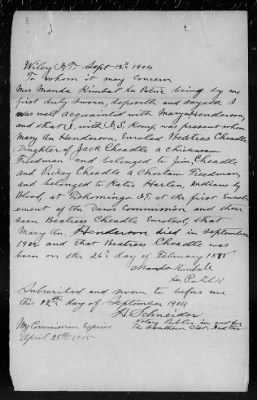 Wiley I.T. Sept 12th 1904
To whom it may concern
Miss Manda Kimbal he being by me
first duly sworn, deposeth and sayeth I
was well acquainted with Mary Henderson,
and that I, with G.S. Kemp was present when
Mary An Henderson, Enroled Beatres Cheadle
Daughter of Jack Cheadle a Chickasaw
Freedman and belonged to Jim, Cheadle
and Vickey Cheadle a Choctaw Freedman,
and belonged to Katie Harlan, Indians by
Blood, at Tishomingo I.T. at the first Enrol
ement of the Daws Commission and then
seen Beatrese Cheadle Enroled, that
Mary An. Henderson died in September
1902 and that Beatress Cheadle was
born on the day of February
Manda Kimbale
her
Subscribed and sworn to before me
this 12th day of September 1904
A Schneider
Notary Public in and for
the Southern Dist. Ind. Ter
My Commission Expires
April 25th